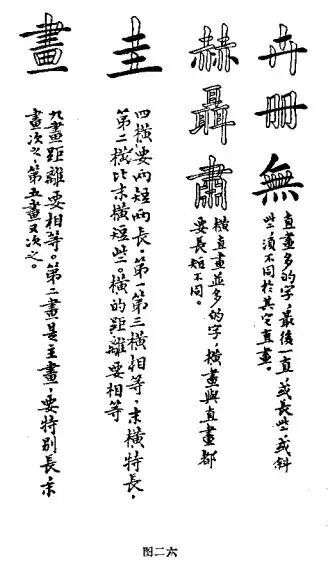 卉冊無
直畫多的字，最後一直或長些，或斜
些，須不同於其它直畫。
赫聶肅
橫直畫並多的字，橫畫與直畫都
要長短不同。
圭
四橫，要有短有長。第一第三橫相等，末橫特長，
第二橫比末橫短些。橫的距離要相等
畫
九畫距離要相等。第二畫是主畫，要特別長，末
畫次之，第五畫又次之。
图二六